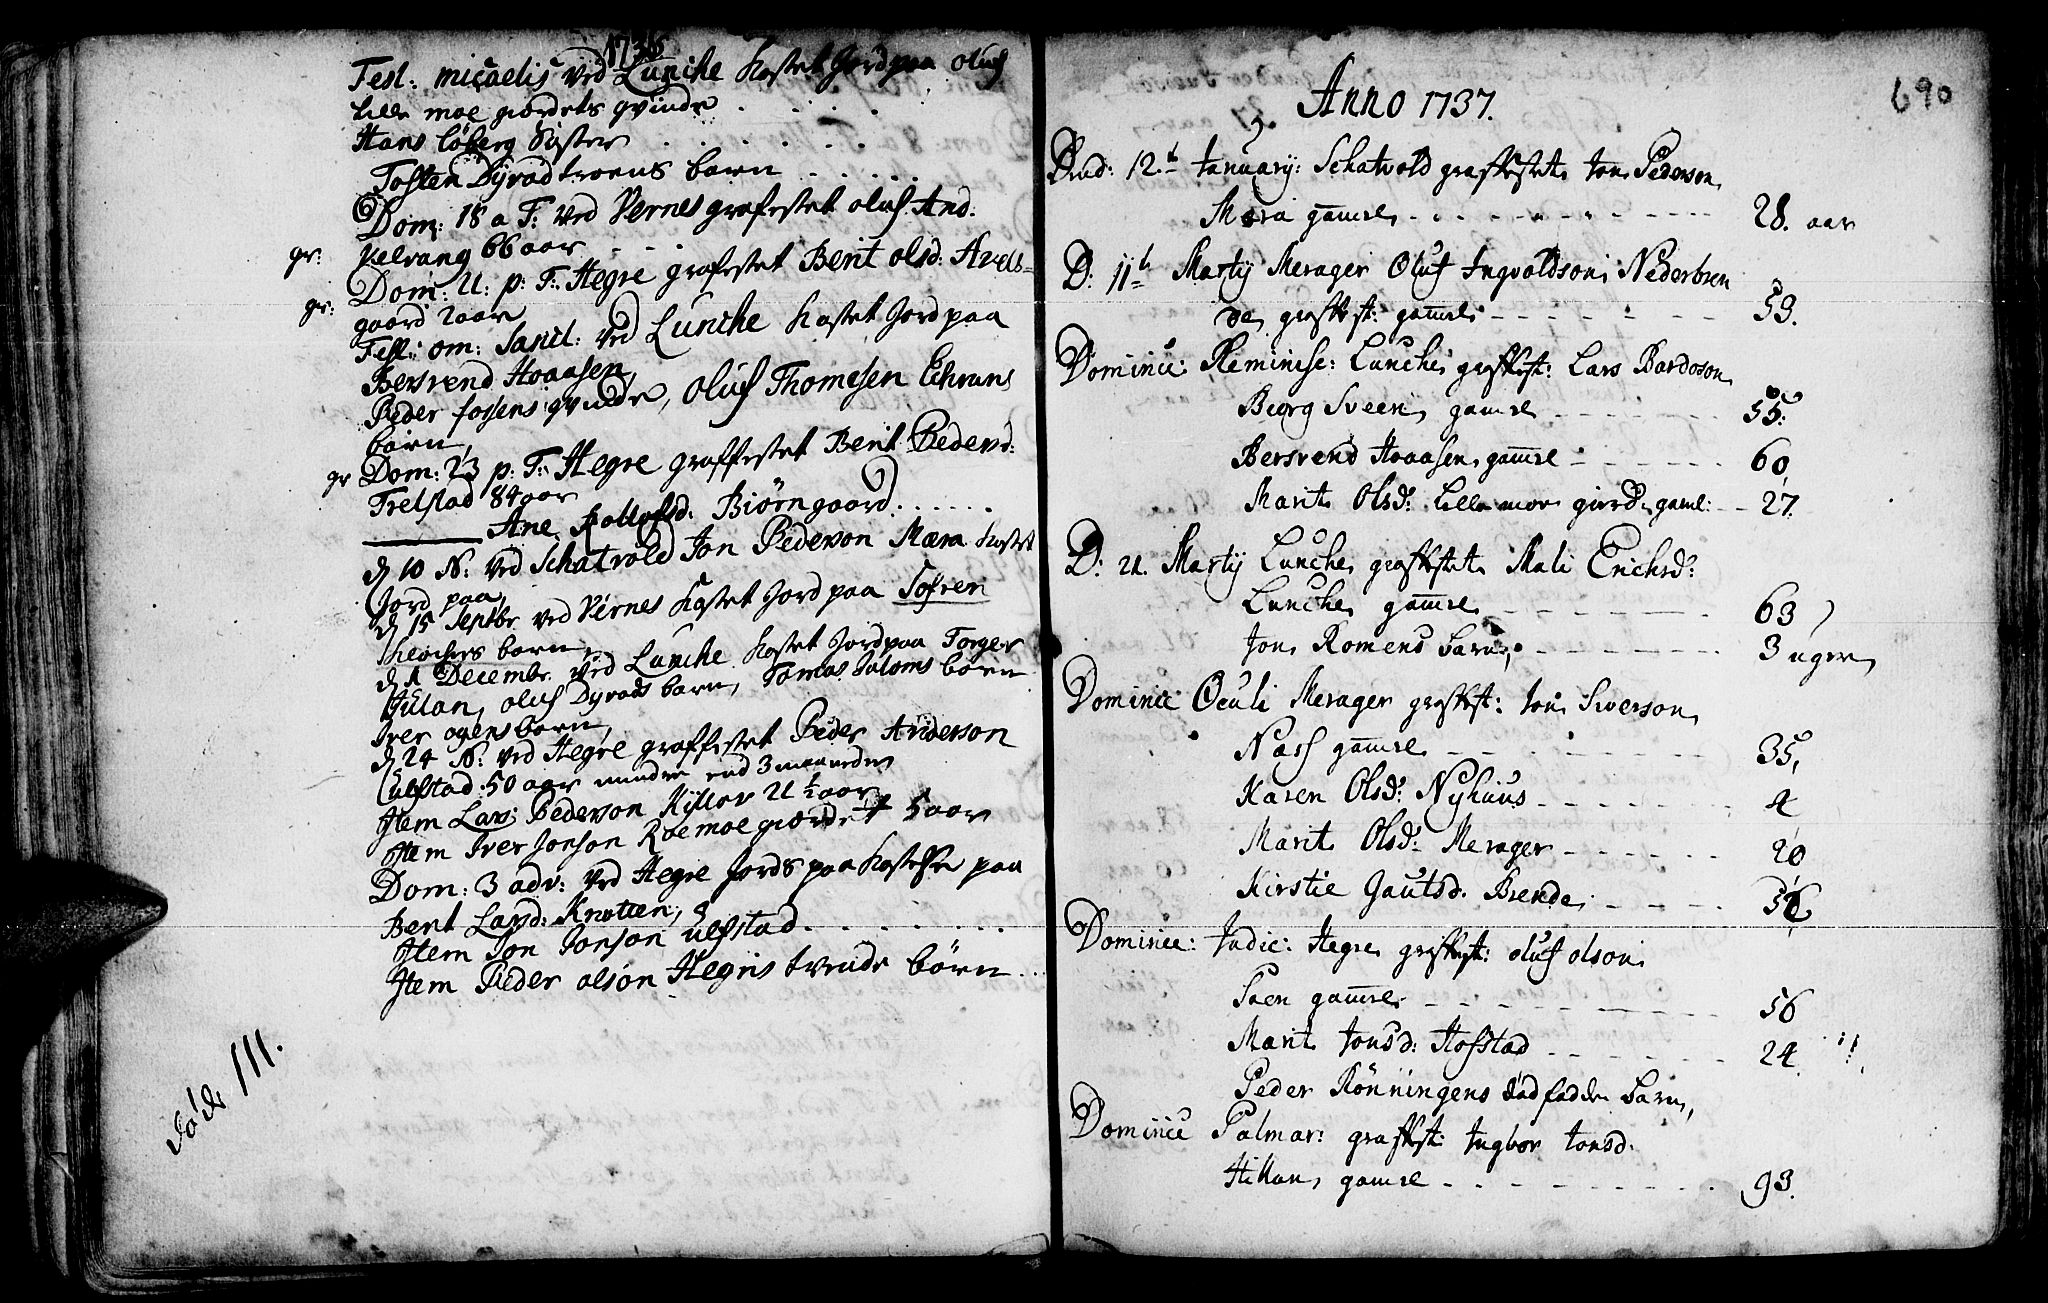 1736
Fest: micaelis ved Lunche Kastet Jord paa oluf
lille moe giordets qvinde . . . .
Hans løberg Søster . . . . . .
Tosten Dyrad troens barn . . . . . .
Dom: 18 a T: ved Vernes grafestet oluf And.
gr: Velvang 66 aar - - -
Dom: 21: p: T: Hegre grafestet Berit olsd: Avels=
gr: gaard 2 aar
Fest: om: Sanct: ved Lunche Kastet Jord paa
Bersvend Hoaasen,
Peder fossens qvinde, oluf Thomesen
barn,
gr Dom: 23 p: T: Hegre graffestet Berit Pedersd:
Trelstad 84 aar
Ane Rollofsd: Biørngaard . . . . . .
d 10 N: ved Schatvold Jon Pederson Mæra Kastet
Jord paa,
d 15 Septbr ved Vernes Kastet Jord paa Tofren
barn,
d 1 Decembr ved Lunche Kastet Jord paa Torger
oluf Dyrads barn, Tomas Saloms barn
Iver oyens barn,
d 24 N: ved Hegre graffestet Peder Anderson
ulfstad 50 aar mindre end 3 maaneder
Item Lars Pederson Kyllor 21 1/2 aar
Item Iver Jonson Roemoe giærdet 5 aar
Dom: 3 adv: ved Hegre Jords paa Kastelse paa
Berit Larsd: Knotten,
Item Jon Jonson ulfstad . . . . . . .
Item Peder olson Hegris tvende børn . .
døde 111.
690
Anno 1737.
12. January: Schatvold graffestet Jon Pederson
Mæra gamel - - - - - - - 28. aar
D: 11 Marty Merager Oluf Ingvoldson Nederbren
den graffest: gamel - - - - - - 59.
Dominic: Reminisc: Lunche graffest: Lars Bardoson
Biørg Sveen gamel - - - - - 55.
Bersvend Hoaasen gamel - - - - - 60,
Marit Olsd: lille moe giærd gaml: - - 27.
D: 21. Marty Lunche graffestet Mali Erichsd:
Lunche gamel - - - - - - 63
Jon Romens barn, - - - - - - 3 uger
Dominic Oculi Merager graffest: Jon Siverson
Narf gamel - - - - - - 35,
Karen Olsd: Nyhuus - - - - - - 4
Marit Olsd: Merager - - - - - 20
Kirstie Gautsd. Brende - - - -
Dominic: Judic: Hegre graffest: oluf olson
Saen gamel - - - - - - - 56
Marit Jonsd: Hofstad - - - - - - 24
Peder Rönningens död fødde barn,
Dominic Palmar: graffest: Ingbor Jonsd.
gamel - - - - - - - - 93.